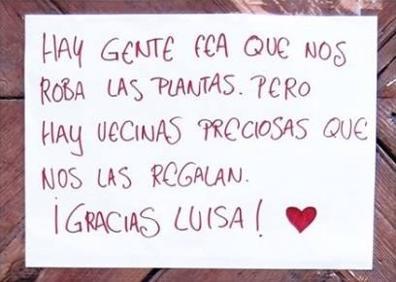 HAY GENTE FEA QUE NOS
ROBA LAS PLANTAS. PERO
HAY VECINAS PRECIOSAS QUE
NOS LAS REGALAN.
¡GRACIAS LUISA! ♥